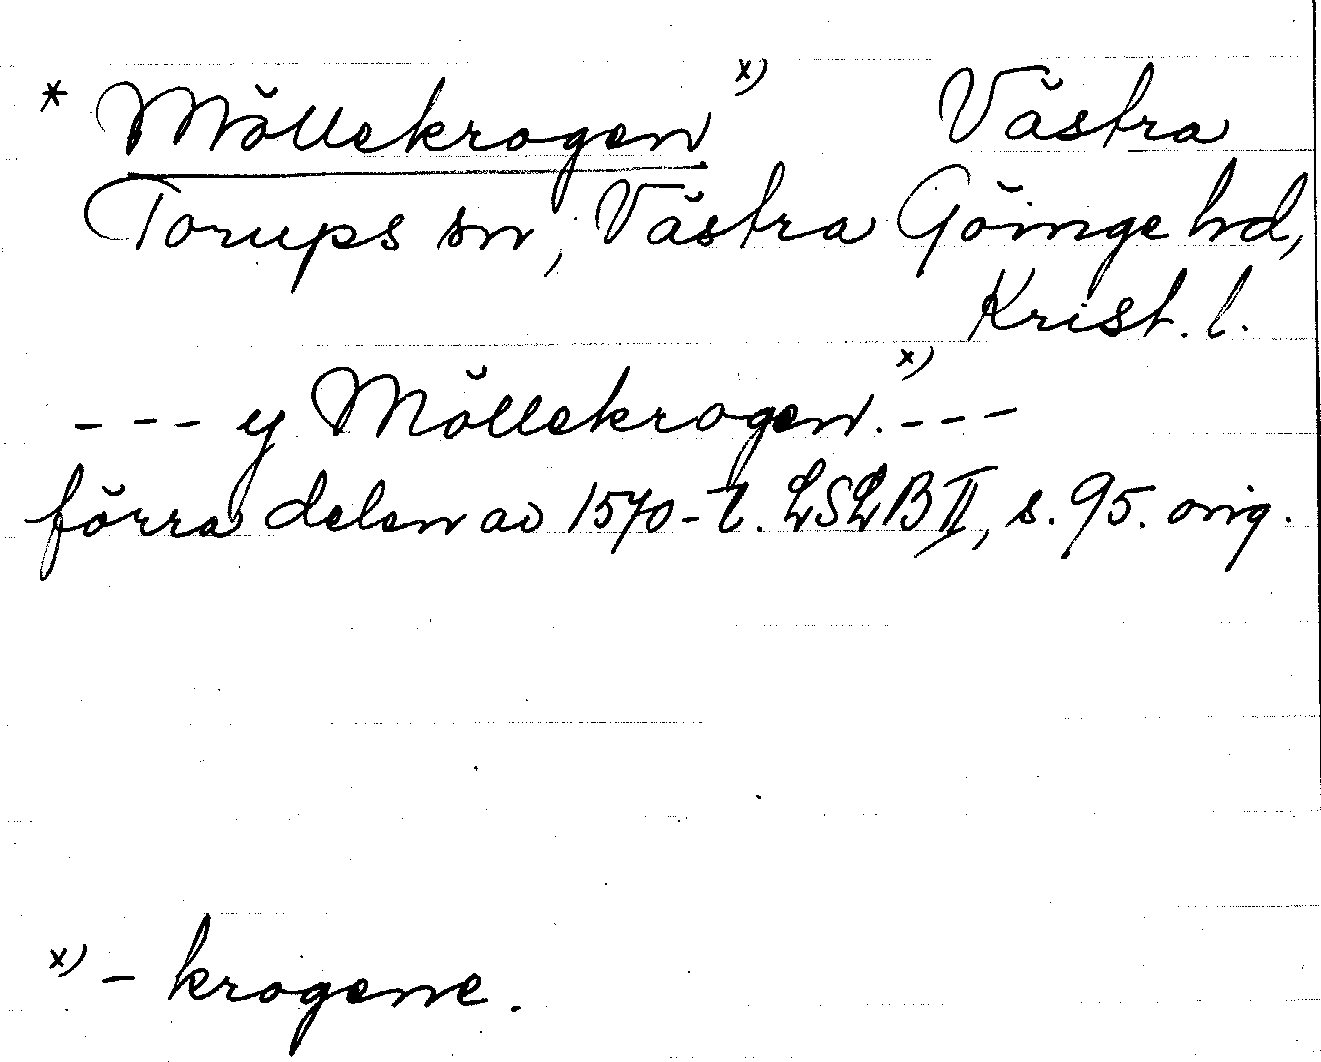 * Möllekrogen x) Västra
Torups sn, Västra Göinge hd,
Krist. l.
--- y Möllekrogen. x) ---
förra delen av 1570-t. LSLB II, s. 95. orig.
x) - krogene.